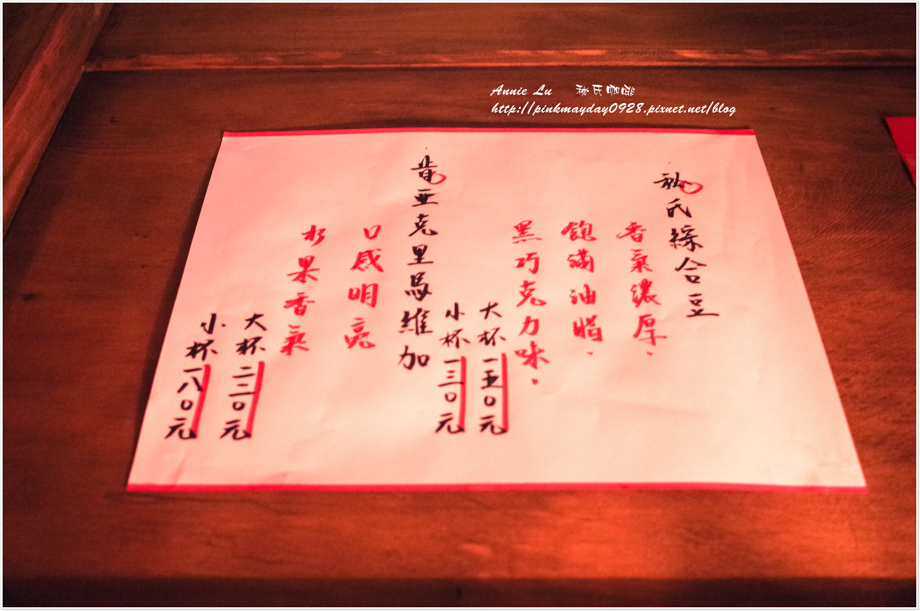 Annie Lu 秘氏咖啡
http://pinkmayday0928.pixnet.net/blog
秘氏綜合豆
香氣濃厚.
飽滿油脂.
黑巧克力味.
大杯一五0元
小杯一三0元
肯亞克里馬維加
口感明亮
水果香氣
大杯二二0元
小杯一八0元